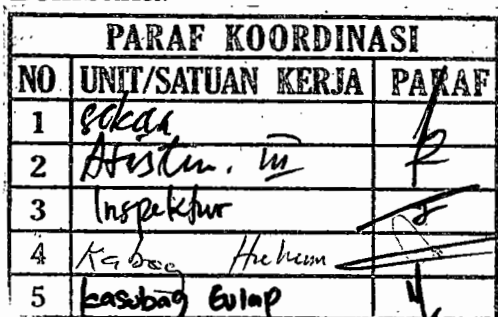 PARAF KOORDINASI
NO UNIT/SATUAN KERJA PARAF
1 sekda
2 Asisten. III
3 Inspektur
4 Kabag Hukum
5 kasubag Eulap